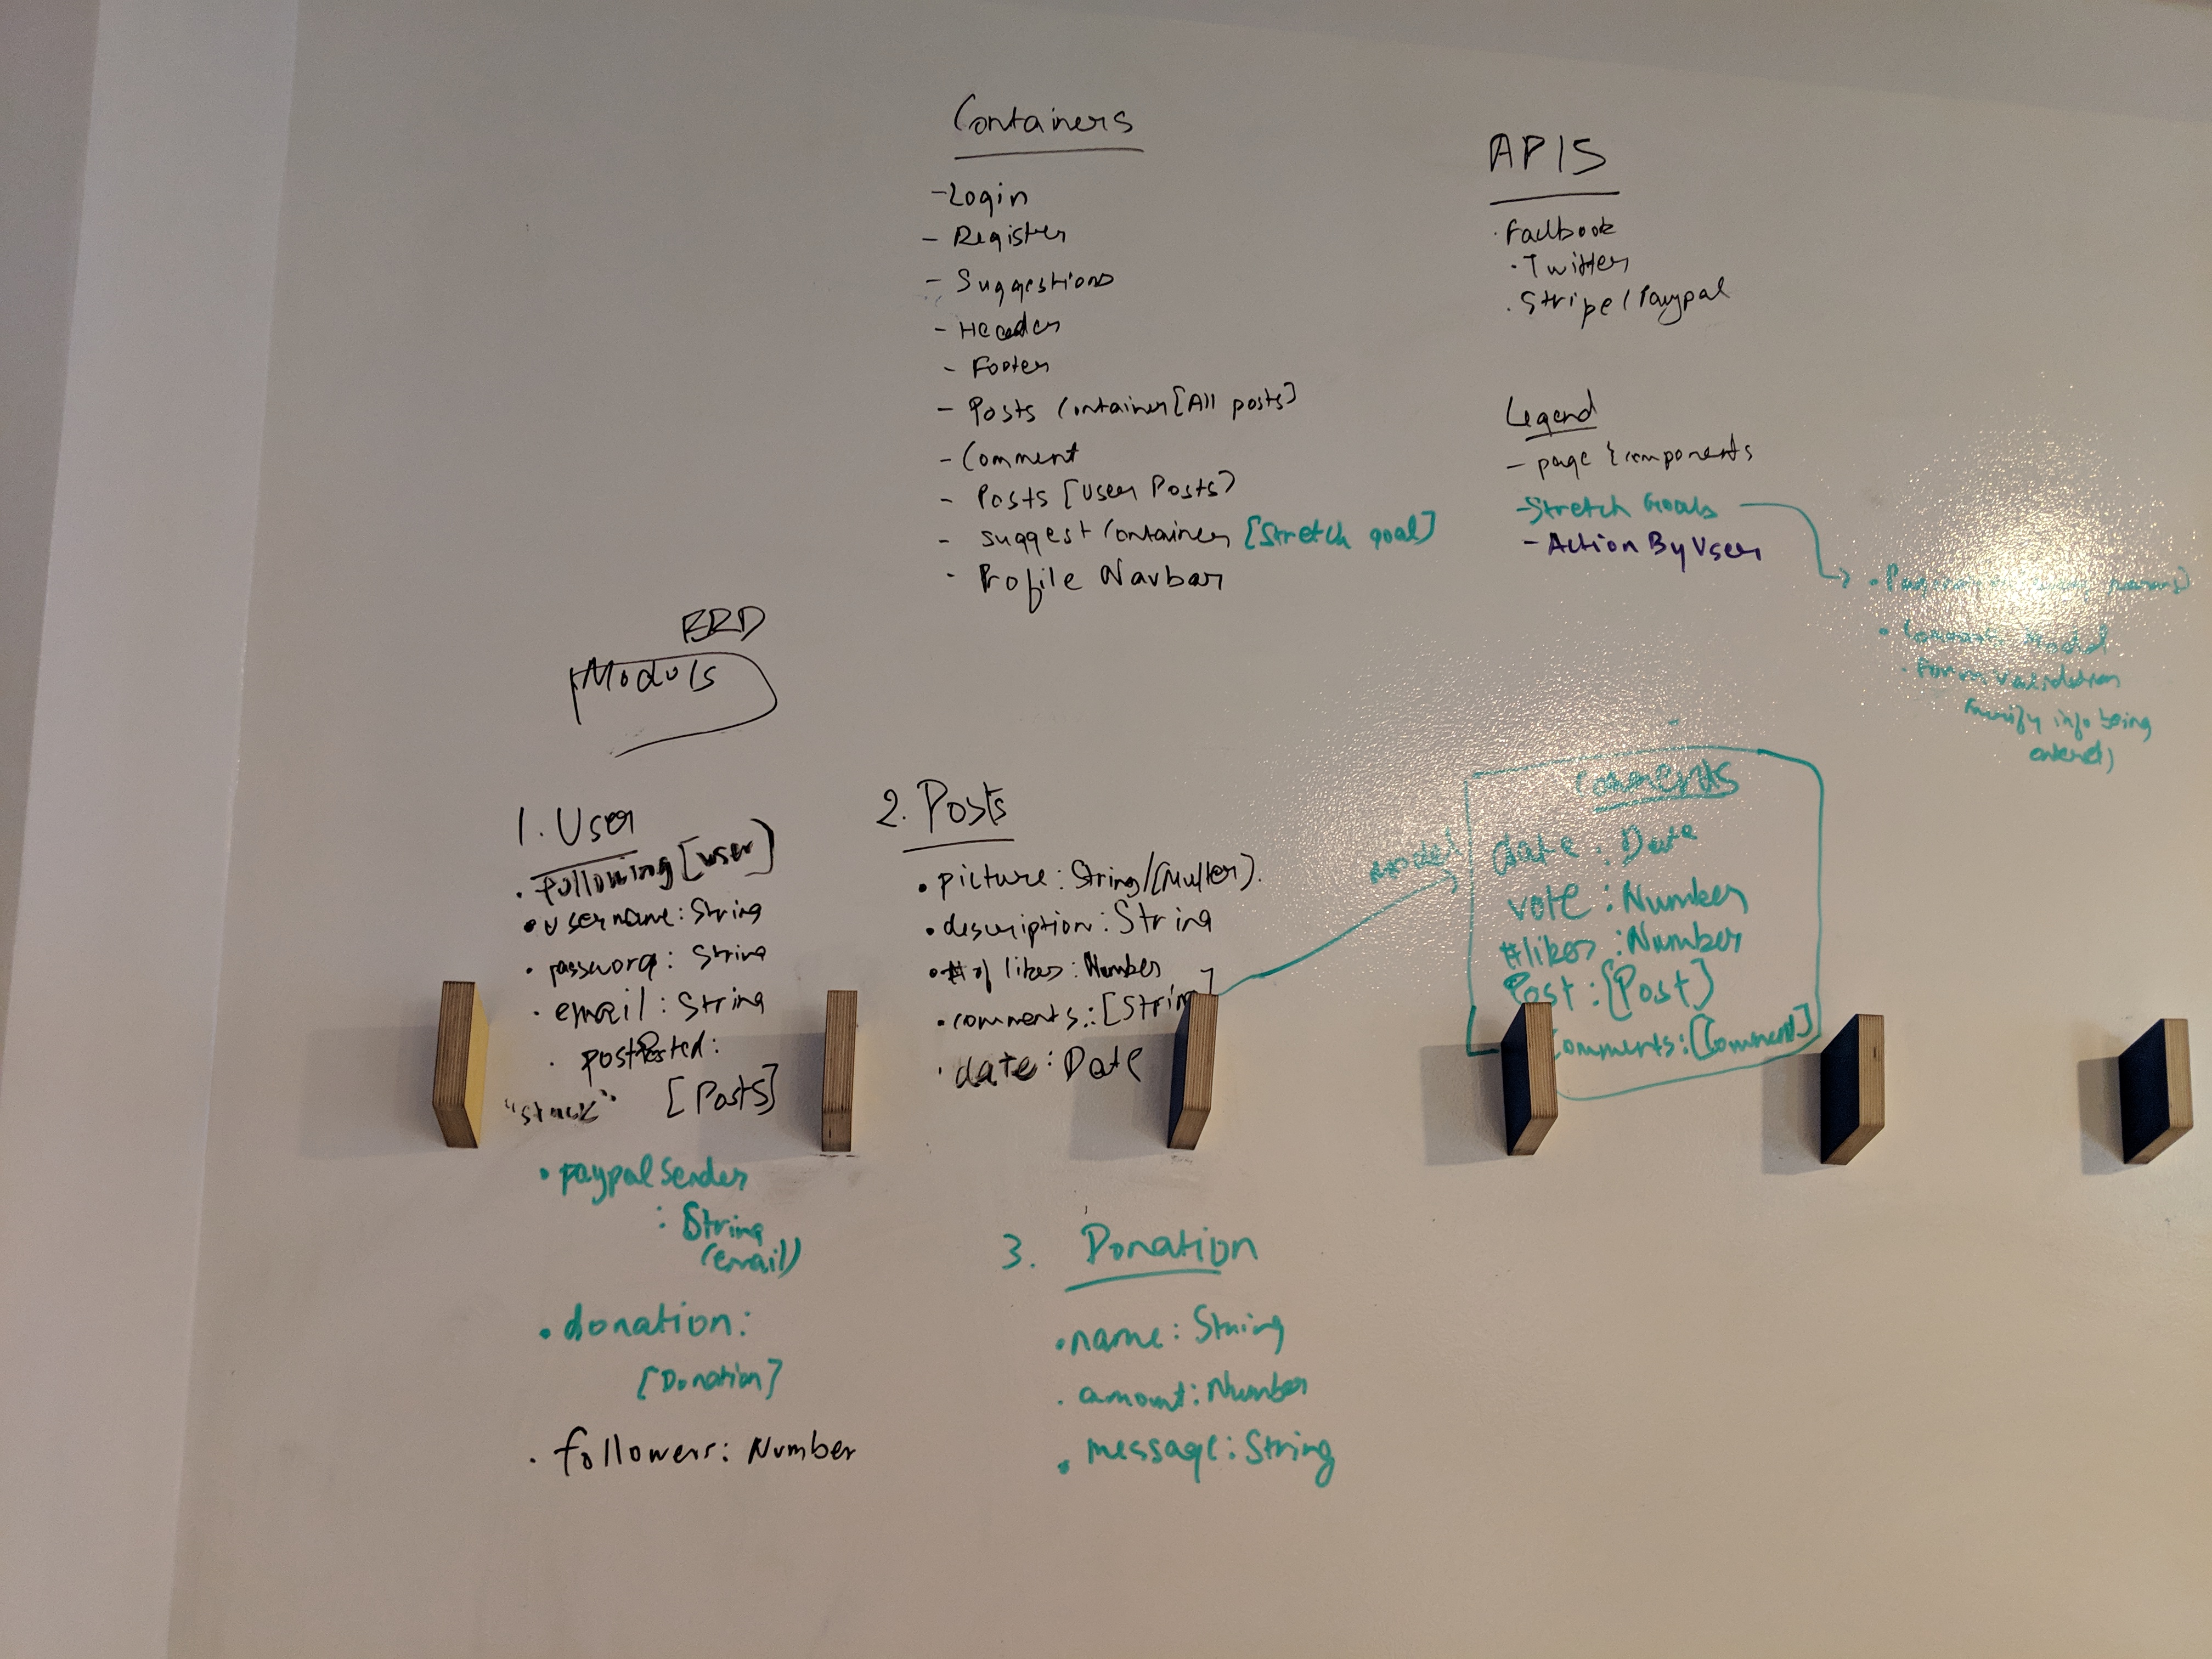 Containers
- Login
- Register
- Suggestions
- Header
- Footer
- Posts Container [All posts]
- Comment
- Posts [User Posts]
- Suggest Container [Stretch goal]
- Profile Navbar
APIS
· Facebook
· Twitter
· Stripe/Paypal
Legend
- page components
- Stretch Goals
- Action By User
· Form validation
info being
entered)
ERD
Moduls
1. User
· following [user]
· username: String
· password: String
· email: String
· postPosted:
[Posts]
"stack"
· paypalSender
: String
(email)
· donation:
[Donation]
· followers: Number
2. Posts
· picture: String/(Multer).
· description: String
· # of likes: Number
· comments: [String]
· date: Date
model
Comments
date: Date
vote: Number
#likes: Number
Post: [Post]
comments: [Comment]
3. Donation
· name: String
· amount: Number
· message: String